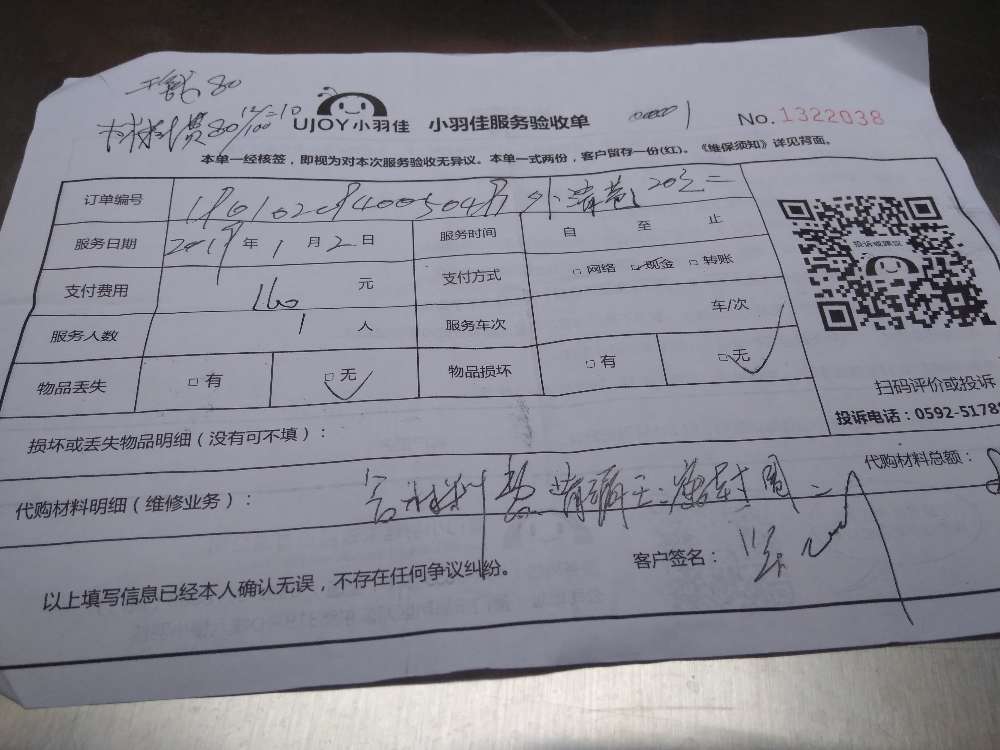 工钱 80
材料费 80
UJOY小羽佳 小羽佳服务验收单 No. 1322038
本单一经核签，即视为对本次服务验收无异议。本单一式两份，客户留存一份(红)。《维保须知》详见背面。
订单编号
服务日期 2019 年 1 月 2 日 服务时间 自 至 止
支付费用 160 元 支付方式 □网络 □现金 □转账
服务人数 1 人 服务车次 车/次
物品丢失 □有 □无 物品损坏 □有 □无
投诉或建议
扫码评价或投诉
投诉电话：0592-5178
损坏或丢失物品明细（没有可不填）：
代购材料明细（维修业务）： 代购材料总额：
以上填写信息已经本人确认无误，不存在任何争议纠纷。 客户签名：